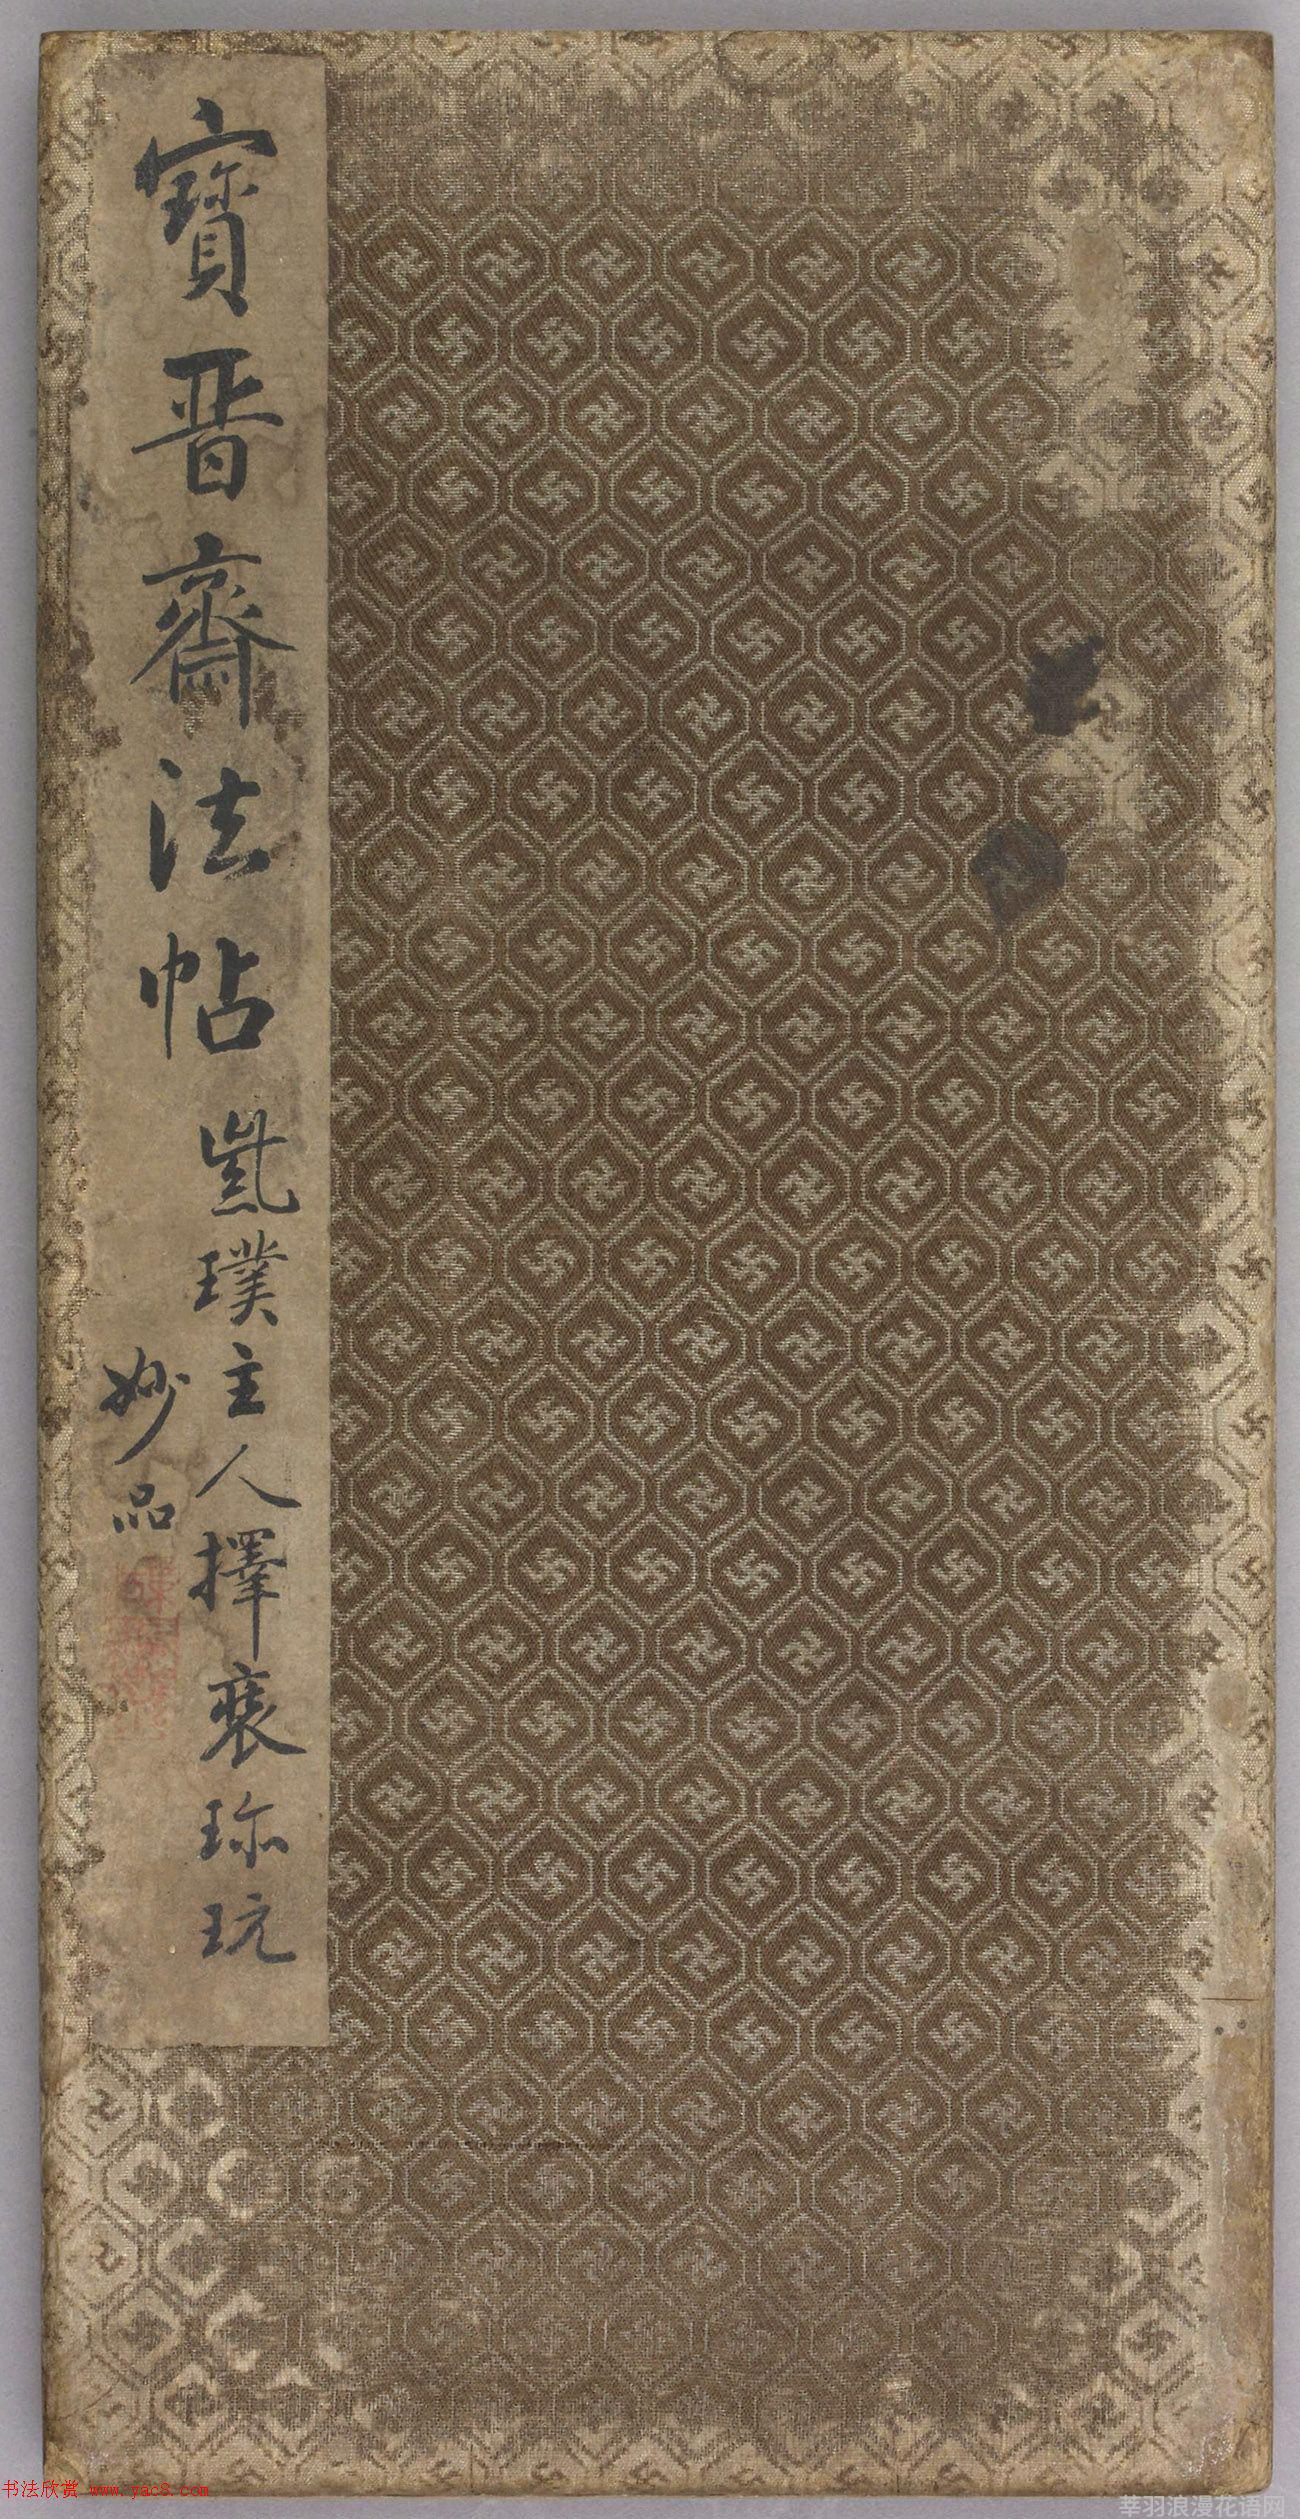 寶晉齋法帖
璞主人擇裘珎玩
妙品
书法欣赏 www.yac8.com
莘羽浪漫花语网